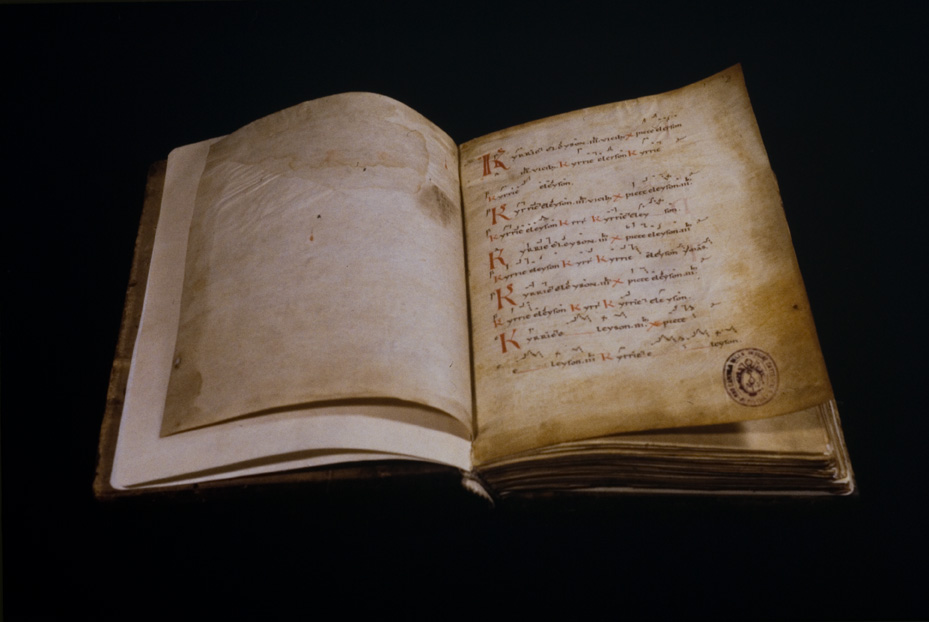 Kyrrie eleyson .iii. vicib; xpicce eleyson
.iii. vicib; Kyrrie eleyson Kyrrie
Kyrrie eleyson.
Kyrrie eleyson .iii. vicib; xpicce eleyson .iii.
Kyrrie eleyson Kyrrie Kyrrie eley son.
Kyrrie eleyson .iii. xpicce eleyson .iii.
Kyrrie eleyson Kyrrie Kyrrie eleyson
Kyrrie eleyson .iii. xpicce eleyson .iii.
Kyrrie eleyson Kyrrie Kyrrie eleyson.
Kyrrie e leyson .iii. xpicce
e leyson .iii. Kyrrie e leyson